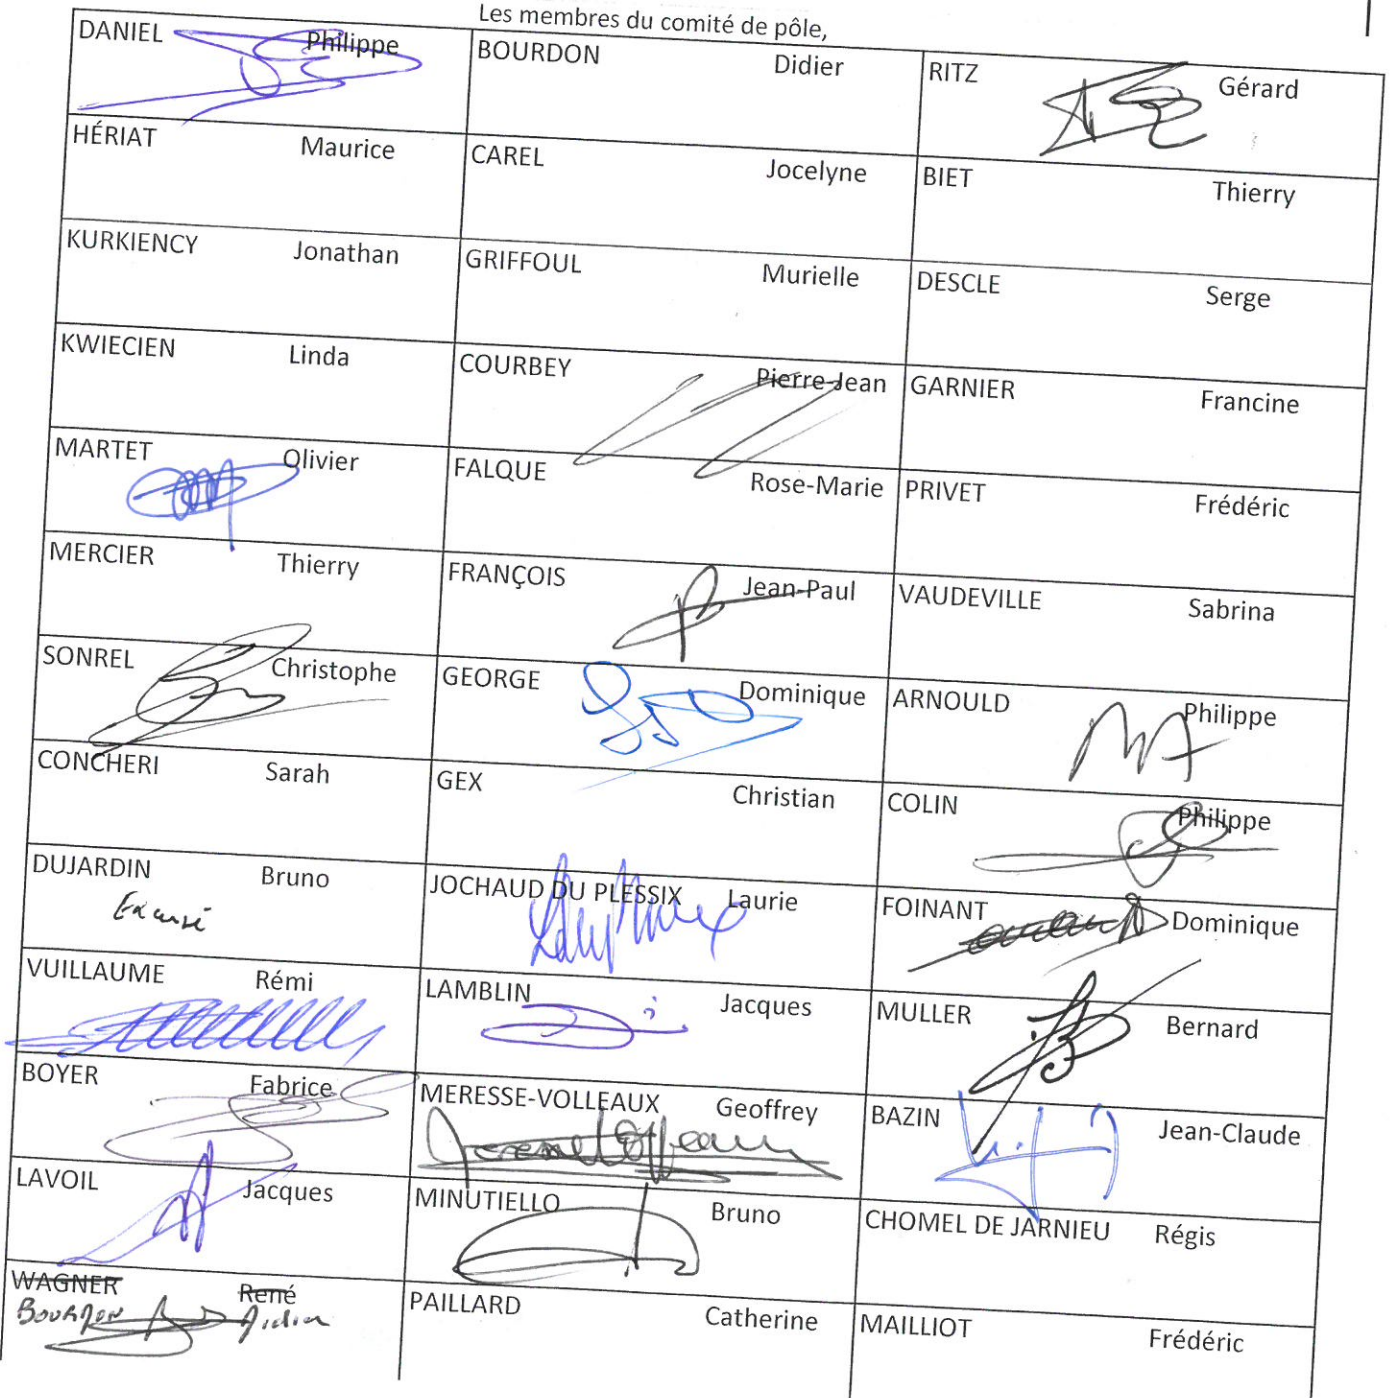 Les membres du comité de pôle,
DANIEL Philippe BOURDON Didier RITZ Gérard
HÉRIAT Maurice CAREL Jocelyne BIET Thierry
KURKIENCY Jonathan GRIFFOUL Murielle DESCLE Serge
KWIECIEN Linda COURBEY Pierre-Jean GARNIER Francine
MARTET Olivier FALQUE Rose-Marie PRIVET Frédéric
MERCIER Thierry FRANÇOIS Jean-Paul VAUDEVILLE Sabrina
SONREL Christophe GEORGE Dominique ARNOULD Philippe
CONCHERI Sarah GEX Christian COLIN Philippe
DUJARDIN Bruno JOCHAUD DU PLESSIX Laurie FOINANT Dominique
Excusé
VUILLAUME Rémi LAMBLIN Jacques MULLER Bernard
BOYER Fabrice MERESSE-VOLLEAUX Geoffrey BAZIN Jean-Claude
LAVOIL Jacques MINUTIELLO Bruno CHOMEL DE JARNIEU Régis
WAGNER René PAILLARD Catherine MAILLIOT Frédéric
BOURDON Didier